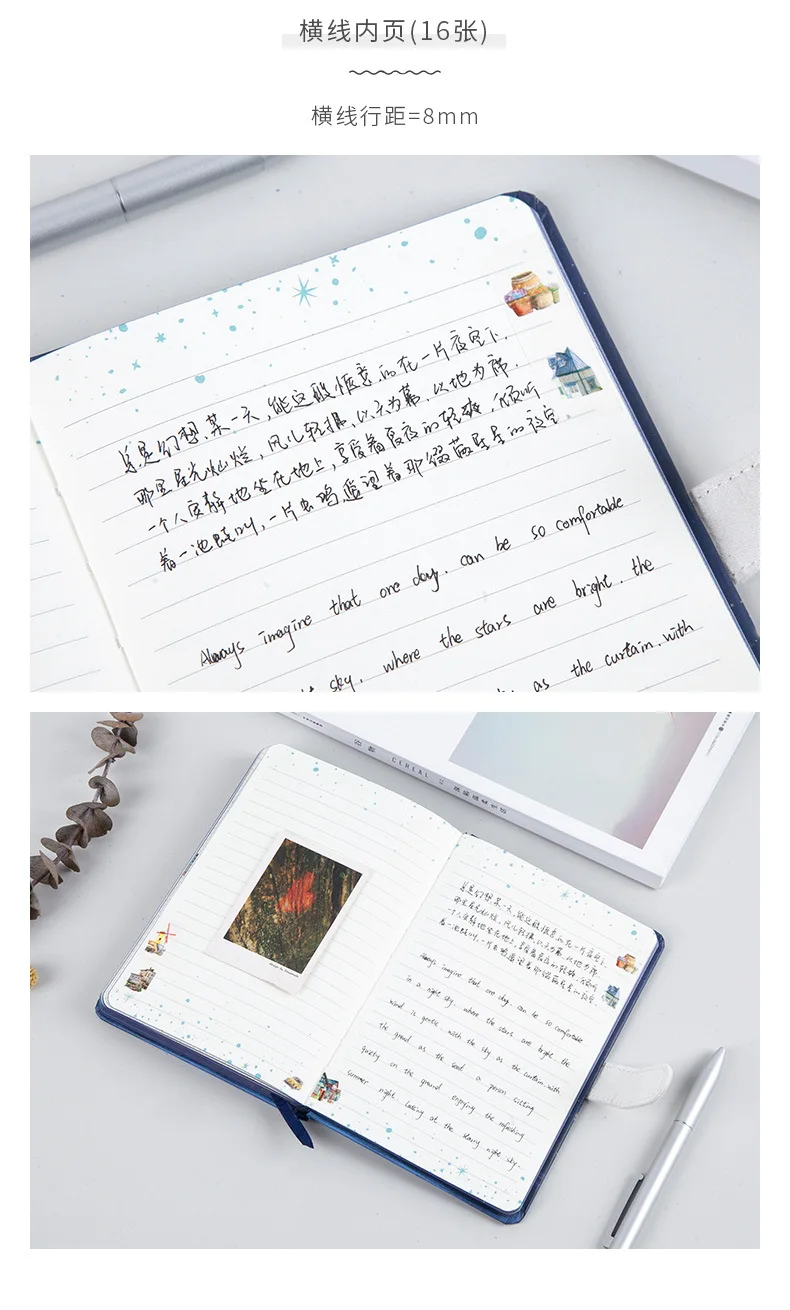 横线内页(16张)
横线行距=8mm
总是幻想,某一天,能这般惬意的在一片夜空下,
那里星光灿烂,风儿轻拂,以天为幕,以地为席,
一个人安静地坐在地上,享受着夏夜的轻爽,倾听
着一池蛙叫,一片虫鸣,遥望着那缀满星星的夜空
Always imagine that one day, can be so comfortable
sky, where the stars are bright, the
as the curtain, with
CEREAL
总是幻想,某一天,能这般惬意的在一片夜空下,
那里星光灿烂,风儿轻拂,以天为幕,以地为席,
一个人安静地坐在地上,享受着夏夜的轻爽,倾听
着一池蛙叫,一片虫鸣,遥望着那缀满星星的夜空
Always imagine that one day, can be so comfortable
in a night sky, where the stars are bright, the
wind is gentle, with the sky as the curtain, with
the ground as the seat, a person sitting
quietly on the ground, enjoying the refreshing
summer night, looking at the starry night sky.